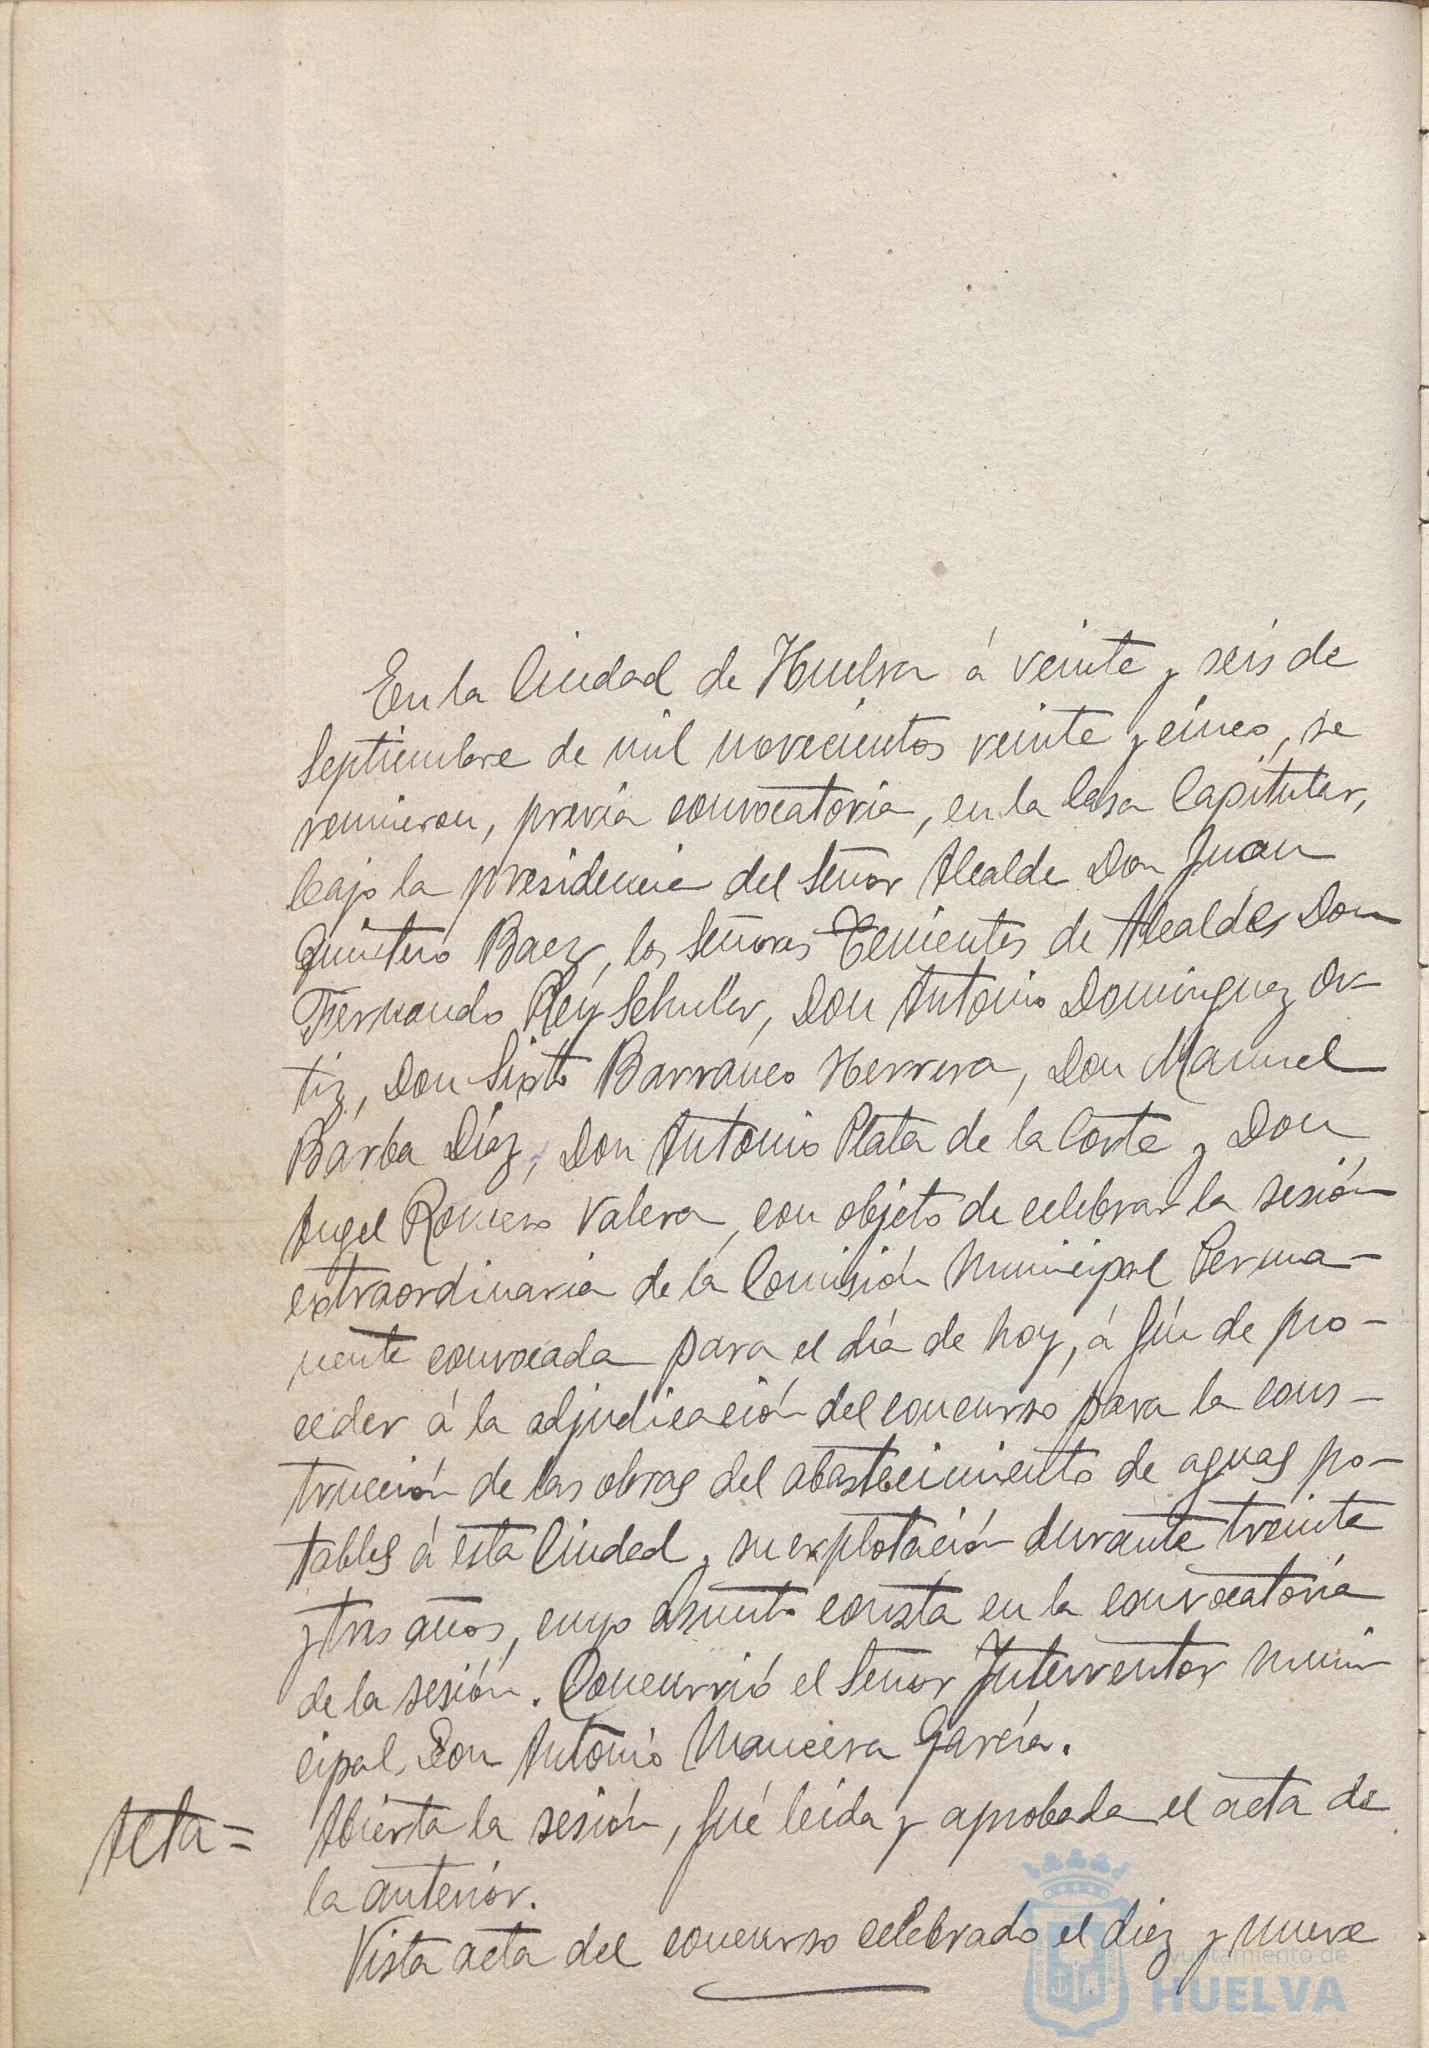 En la Ciudad de Huelva á veinte y seis de
Septiembre de mil novecientos veinte y cinco, se
reunieron, previa convocatoria, en la Casa Capitular,
bajo la presidencia del Señor Alcalde Don Juan
Quintero Baez, los Señores Tenientes de Alcaldes Don
Fernando Rey Schuler, Don Antonio Dominguez Or-
tiz, Don Sixto Barranco Herrera, Don Manuel
Bárba Díaz, Don Antonio Plata de la Corte y Don
Angel Romero Valera, con objeto de celebrar la sesión
extraordinaria de la Comisión Municipal Perma-
nente convocada para el día de hoy, á fín de pro-
ceder á la adjudicación del concurso para la cons-
trucción de las obras del abastecimiento de aguas po-
tables á esta Ciudad y su explotación durante treinta
y tres años, cuyo asunto consta en la convocatoria
de la sesión. Concurrió el Señor Interventor muni-
cipal, Don Antonio Mancera García.
Acta= Abierta la sesión, fué leida y aprobada el acta de
la anterior.
Vista acta del concurso celebrado el diez y nueve
Ayuntamiento de
HUELVA